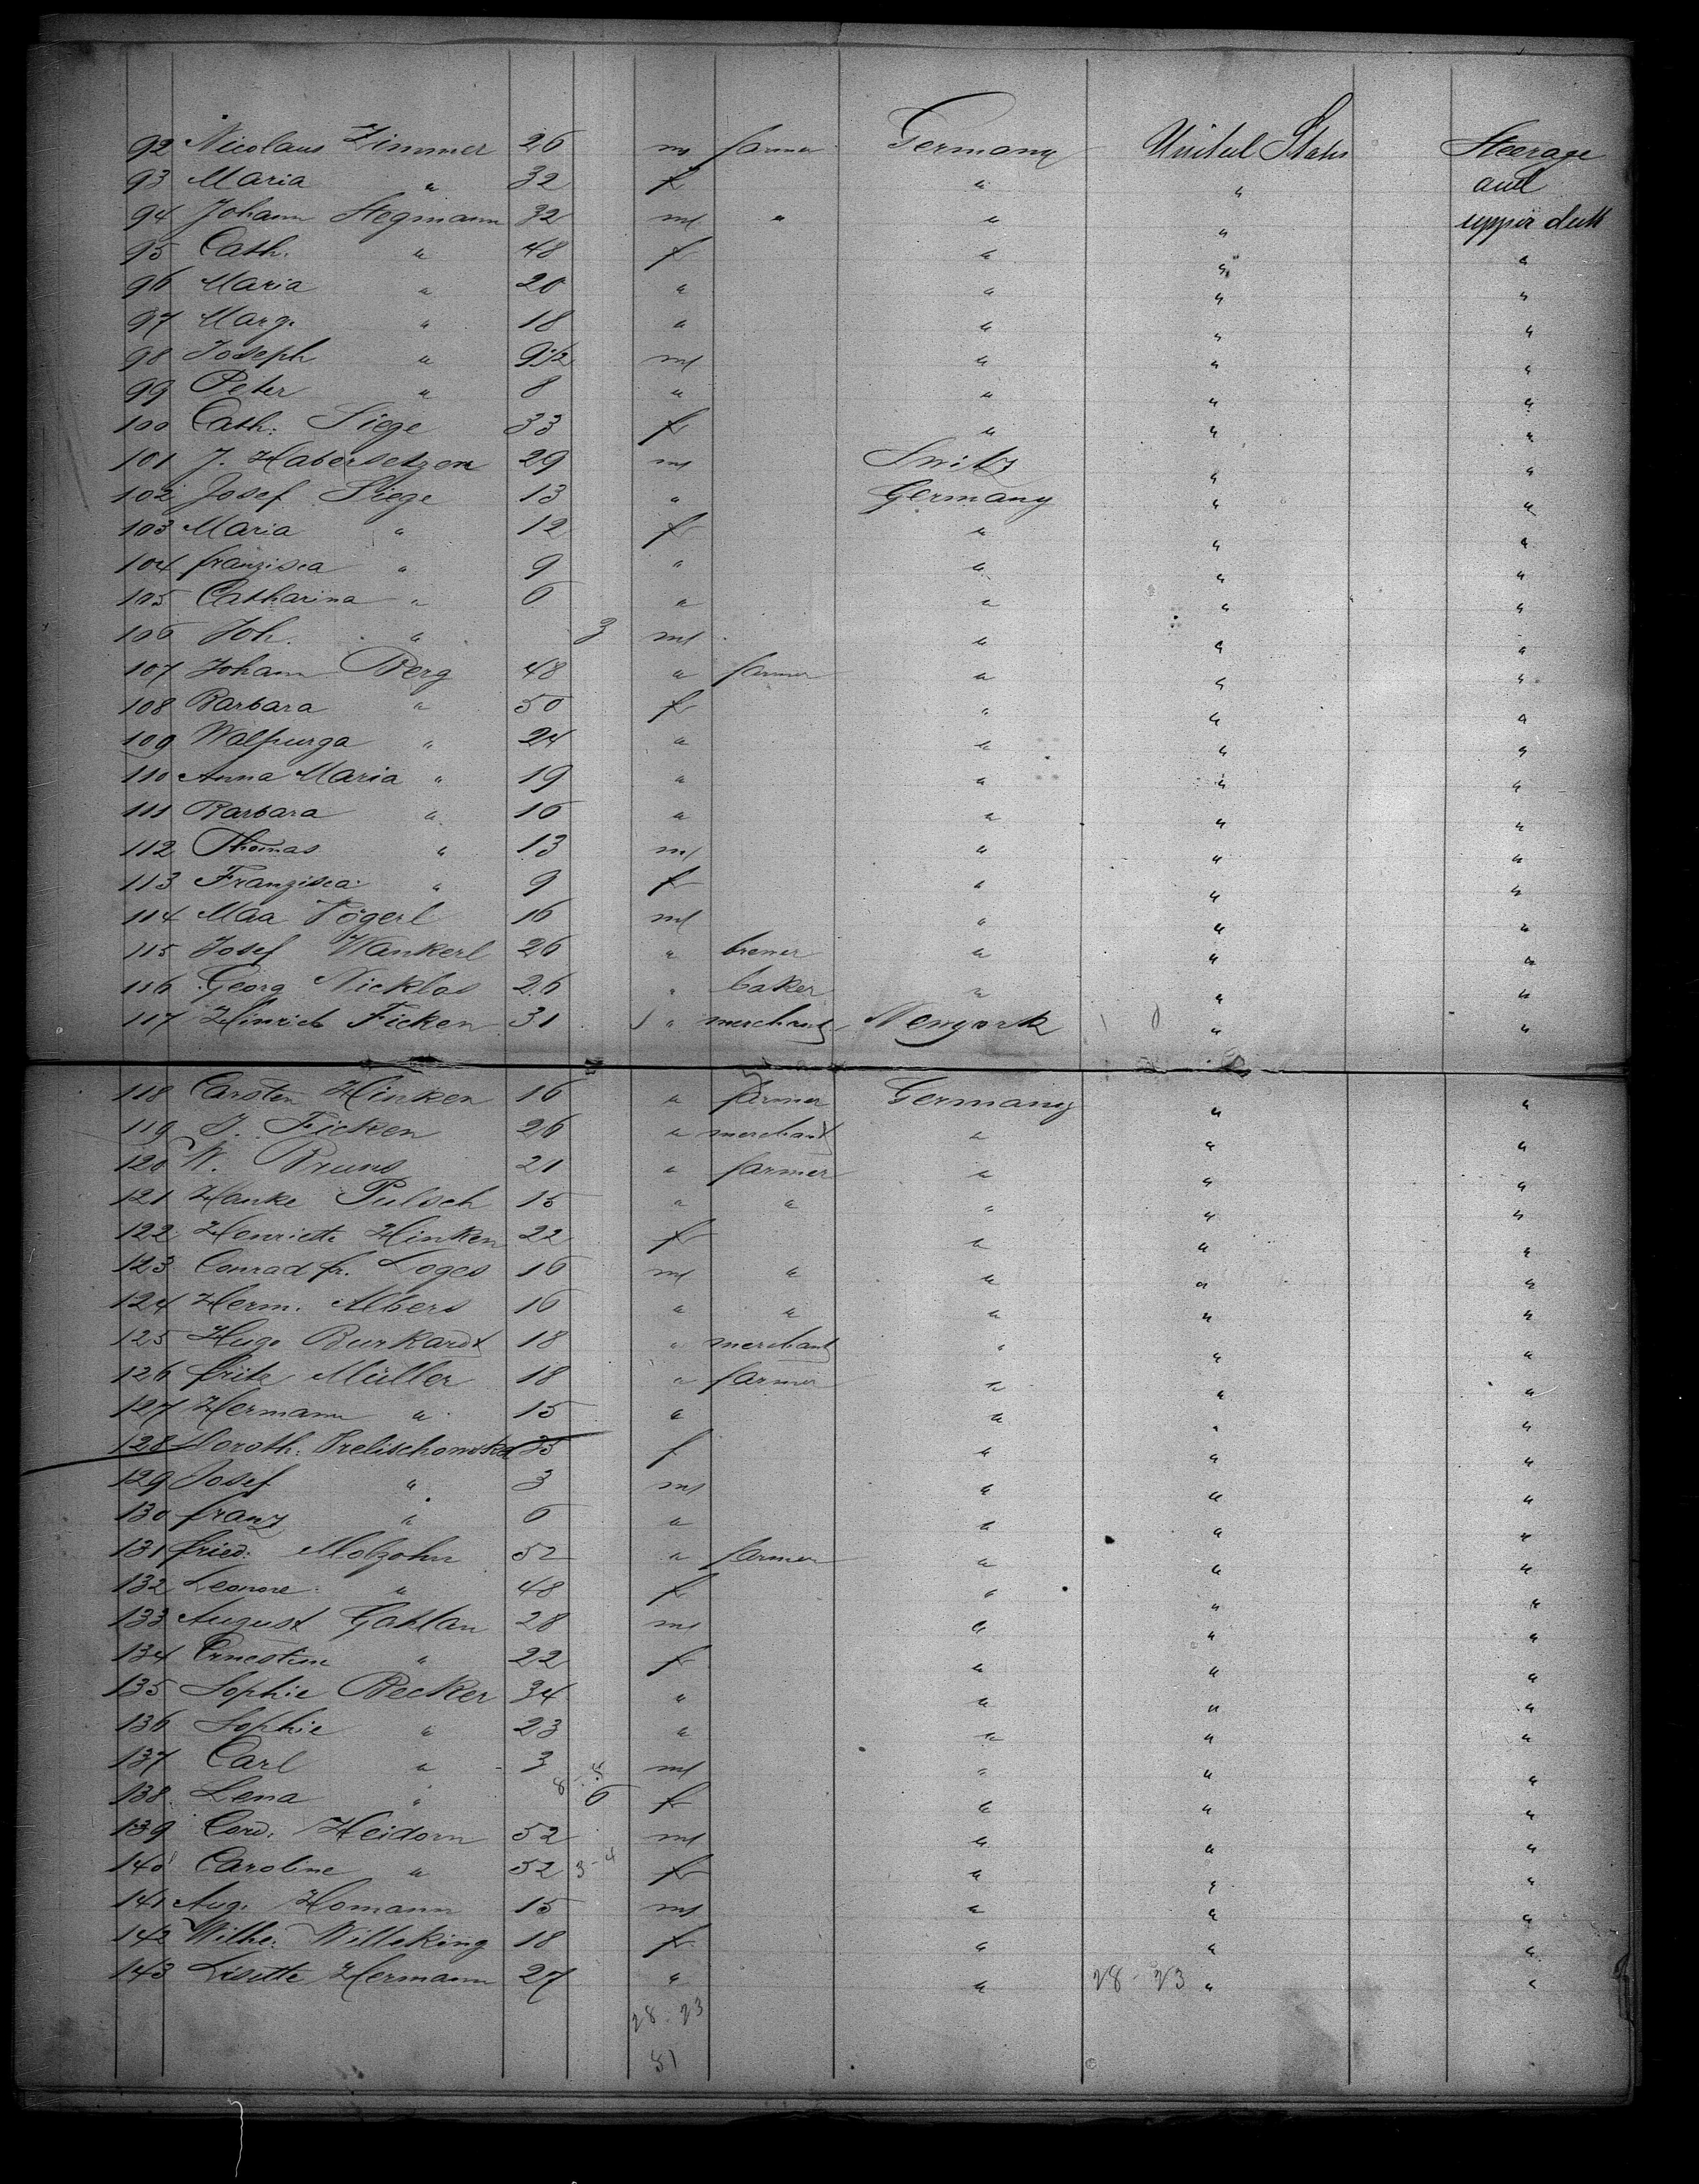 92 Nicolaus Zimmer 26 m farmer Germany United States Steerage
93 Maria " 32 f " " and
94 Johann Stegmann 32 m " " " upper deck
95 Cath. " 48 f " " "
96 Maria " 20 " " " "
97 Marg. " 18 " " " "
98 Joseph " 9 1/2 m " " "
99 Peter " 8 " " " "
100 Cath. Siege 33 f " " "
101 J. Habersetzer 29 m Switz " "
102 Josef Siege 13 " Germany " "
103 Maria " 12 f " " "
104 franzisca " 9 " " " "
105 Catharina " 6 " " " "
106 Joh. " 3 m " " "
107 Johann Berg 48 " farmer " " "
108 Barbara " 50 f " " "
109 Walpurga " 24 " " " "
110 Anna Maria " 19 " " " "
111 Barbara " 16 " " " "
112 Thomas " 13 m " " "
113 Franzisca " 9 f " " "
114 16 m " " "
115 Josef Wankerl 26 " brewer " " "
116 Georg Nicklas 26 " baker " " "
117 Hinrich Ficken 31 " merchant Newyork " "
118 Carsten Hinken 16 " farmer Germany " "
119 J. Ficken 26 " merchant " " "
120 W. Bruns 21 " farmer " " "
121 Hanke Pulsch 15 " " " " "
122 Henriette Hinken 22 f " " "
123 Conrad fr. Loges 16 m " " " "
124 Herm. Albers 16 " " " " "
125 Hugo Burkardt 18 " merchant " " "
126 fritz Müller 18 " farmer " " "
127 Hermann " 15 " " " "
128 Doroth. f " " "
129 Josef " 3 m " " "
130 franz " 6 " " " "
131 fried. Molzohn 52 " farmer " " "
132 Leonore " 48 f " " "
133 August Gatlan 28 m " " "
134 Ernestine " 22 f " " "
135 Sophie Becker 34 " " " "
136 Sophie " 23 " " " "
137 Carl " 3 m " " "
138 Lena " 6 f " " "
139 Cord. Heidorn 52 m " " "
140 Caroline " 52 f " " "
141 Aug. Homann 15 m " " "
142 Wilhe. Willeking 18 f " " "
143 Lisette Hermann 27 " " 28-23 " "
28-23
81